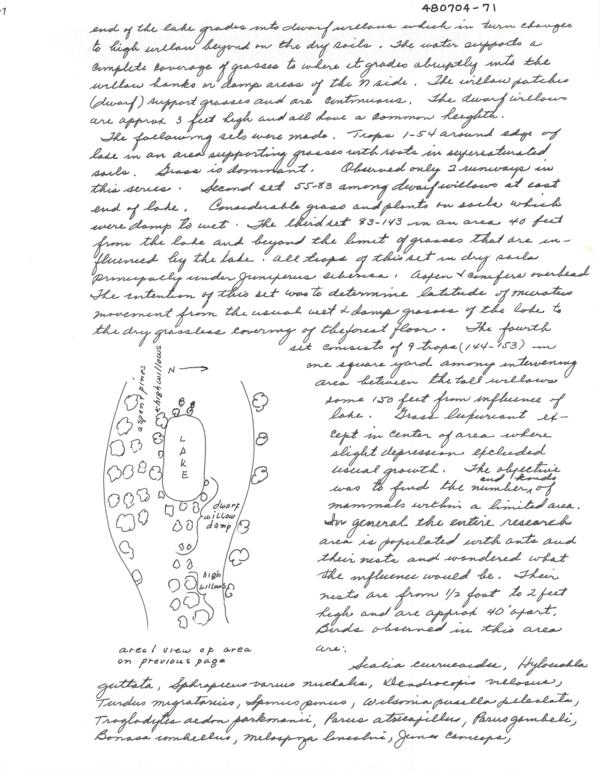 480704-71
end of the lake grades into dwarf willows which in turn changes
to high willow beyond on the dry soils. The water supports a
complete coverage of grasses to where it grades abruptly into the
willow banks or damp areas of the N side. The willow patches
(dwarf) support grasses and are continuous. The dwarf willows
are approx 3 feet high and all have a common heighth.
The following sets were made. Traps 1-54 around edge of
lake in an area supporting grasses with roots in supersaturated
soils. Grass is dominant. Observed only 2 runways in
this series. Second set 55-83 among dwarf willows at east
end of lake. Considerable grass and plants on soils which
were damp to wet. The third set 83-143 in an area 40 feet
from the lake and beyond the limit of grasses that are in-
fluenced by the lake. All traps of this set in dry soils
principally under Juniperus sibirica. Aspen & conifers overhead
The intention of this set was to determine latitude of microtus
movement from the usual wet & damp grasses of the lake to
the dry grassless covering of the forest floor. The fourth
set consists of 9 traps (144-153) in
one square yard among intervening
area between the tall willows
some 150 feet from influence of
lake. Grass luxuriant ex-
cept in center of area where
slight depression excluded
usual growth. The objective
was to find the number and kinds of
mammals within a limited area.
In general the entire research
area is populated with ants and
their nests and wondered what
the influence would be. Their
nests are from 1/2 foot to 2 feet
high and are approx 40' apart.
Birds observed in this area
are:
Sialia currucoides, Hylocichla
guttata, Sphrapicus varius nuchalis, Dendrocopis villosus,
Turdus migratorius, Spinus pinus, Wilsonia pusilla pileolata,
Troglodytes aedon parkmanii, Parus atricapillus, Parus gambeli,
Bonasa umbellus, Melospiza lincolnii, Junco caniceps,
aspen & pines
high willows
N
LAKE
dwarf
willow
damp
high
willows
areal view of area
on previous page